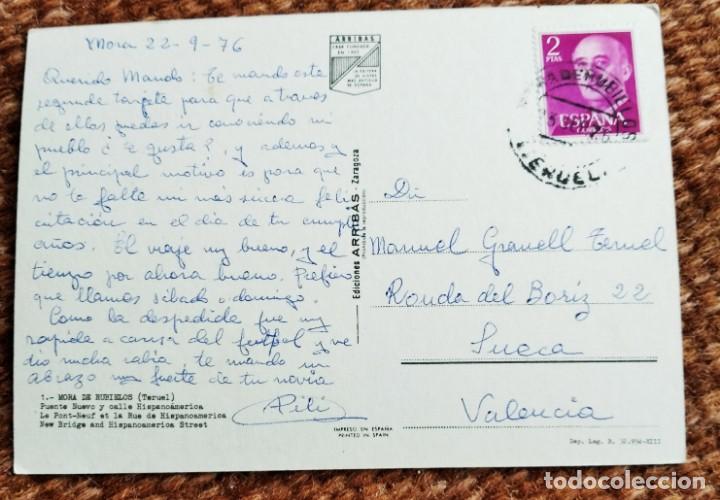 Mora 22-9-76
Querido Manolo: Te mando esta
segunda tarjeta para que a traves
de ellas puedas ir conociendo mi
pueblo ¿te gusta?, y ademas y
el principal motivo es para que
no te falte mi mas sincera feli
citación en el dia de tu cumple
años. El viaje muy bueno, y el
tiempo por ahora bueno. Prefiero
que llames sábado o domingo.
Como la despedida fue muy
rapida a causa del futbol y me
dio mucha rabia, te mando un
abrazo muy fuerte de tu novia
Pili
1.- MORA DE RUBIELOS (Teruel)
Puente Nuevo y calle Hispanoamérica
Le Pont-Neuf et la Rue de Hispanoamerica
New Bridge and Hispanoamerica Street
ARRIBAS
CASA FUNDADA
LA EDITORA
DE VISTAS
MAS ANTIGUA
DE ESPAÑA
Ediciones ARRIBAS - Zaragoza
IMPRESO EN ESPAÑA
PRINTED IN SPAIN
2
PTAS
ESPAÑA
CORREOS
TERUEL
D.
Manuel Granell Teruel
Ronda del Boriz 22
Sueca
Valencia
Dep. Leg. B. XIII
todocoleccion
todocoleccion.net